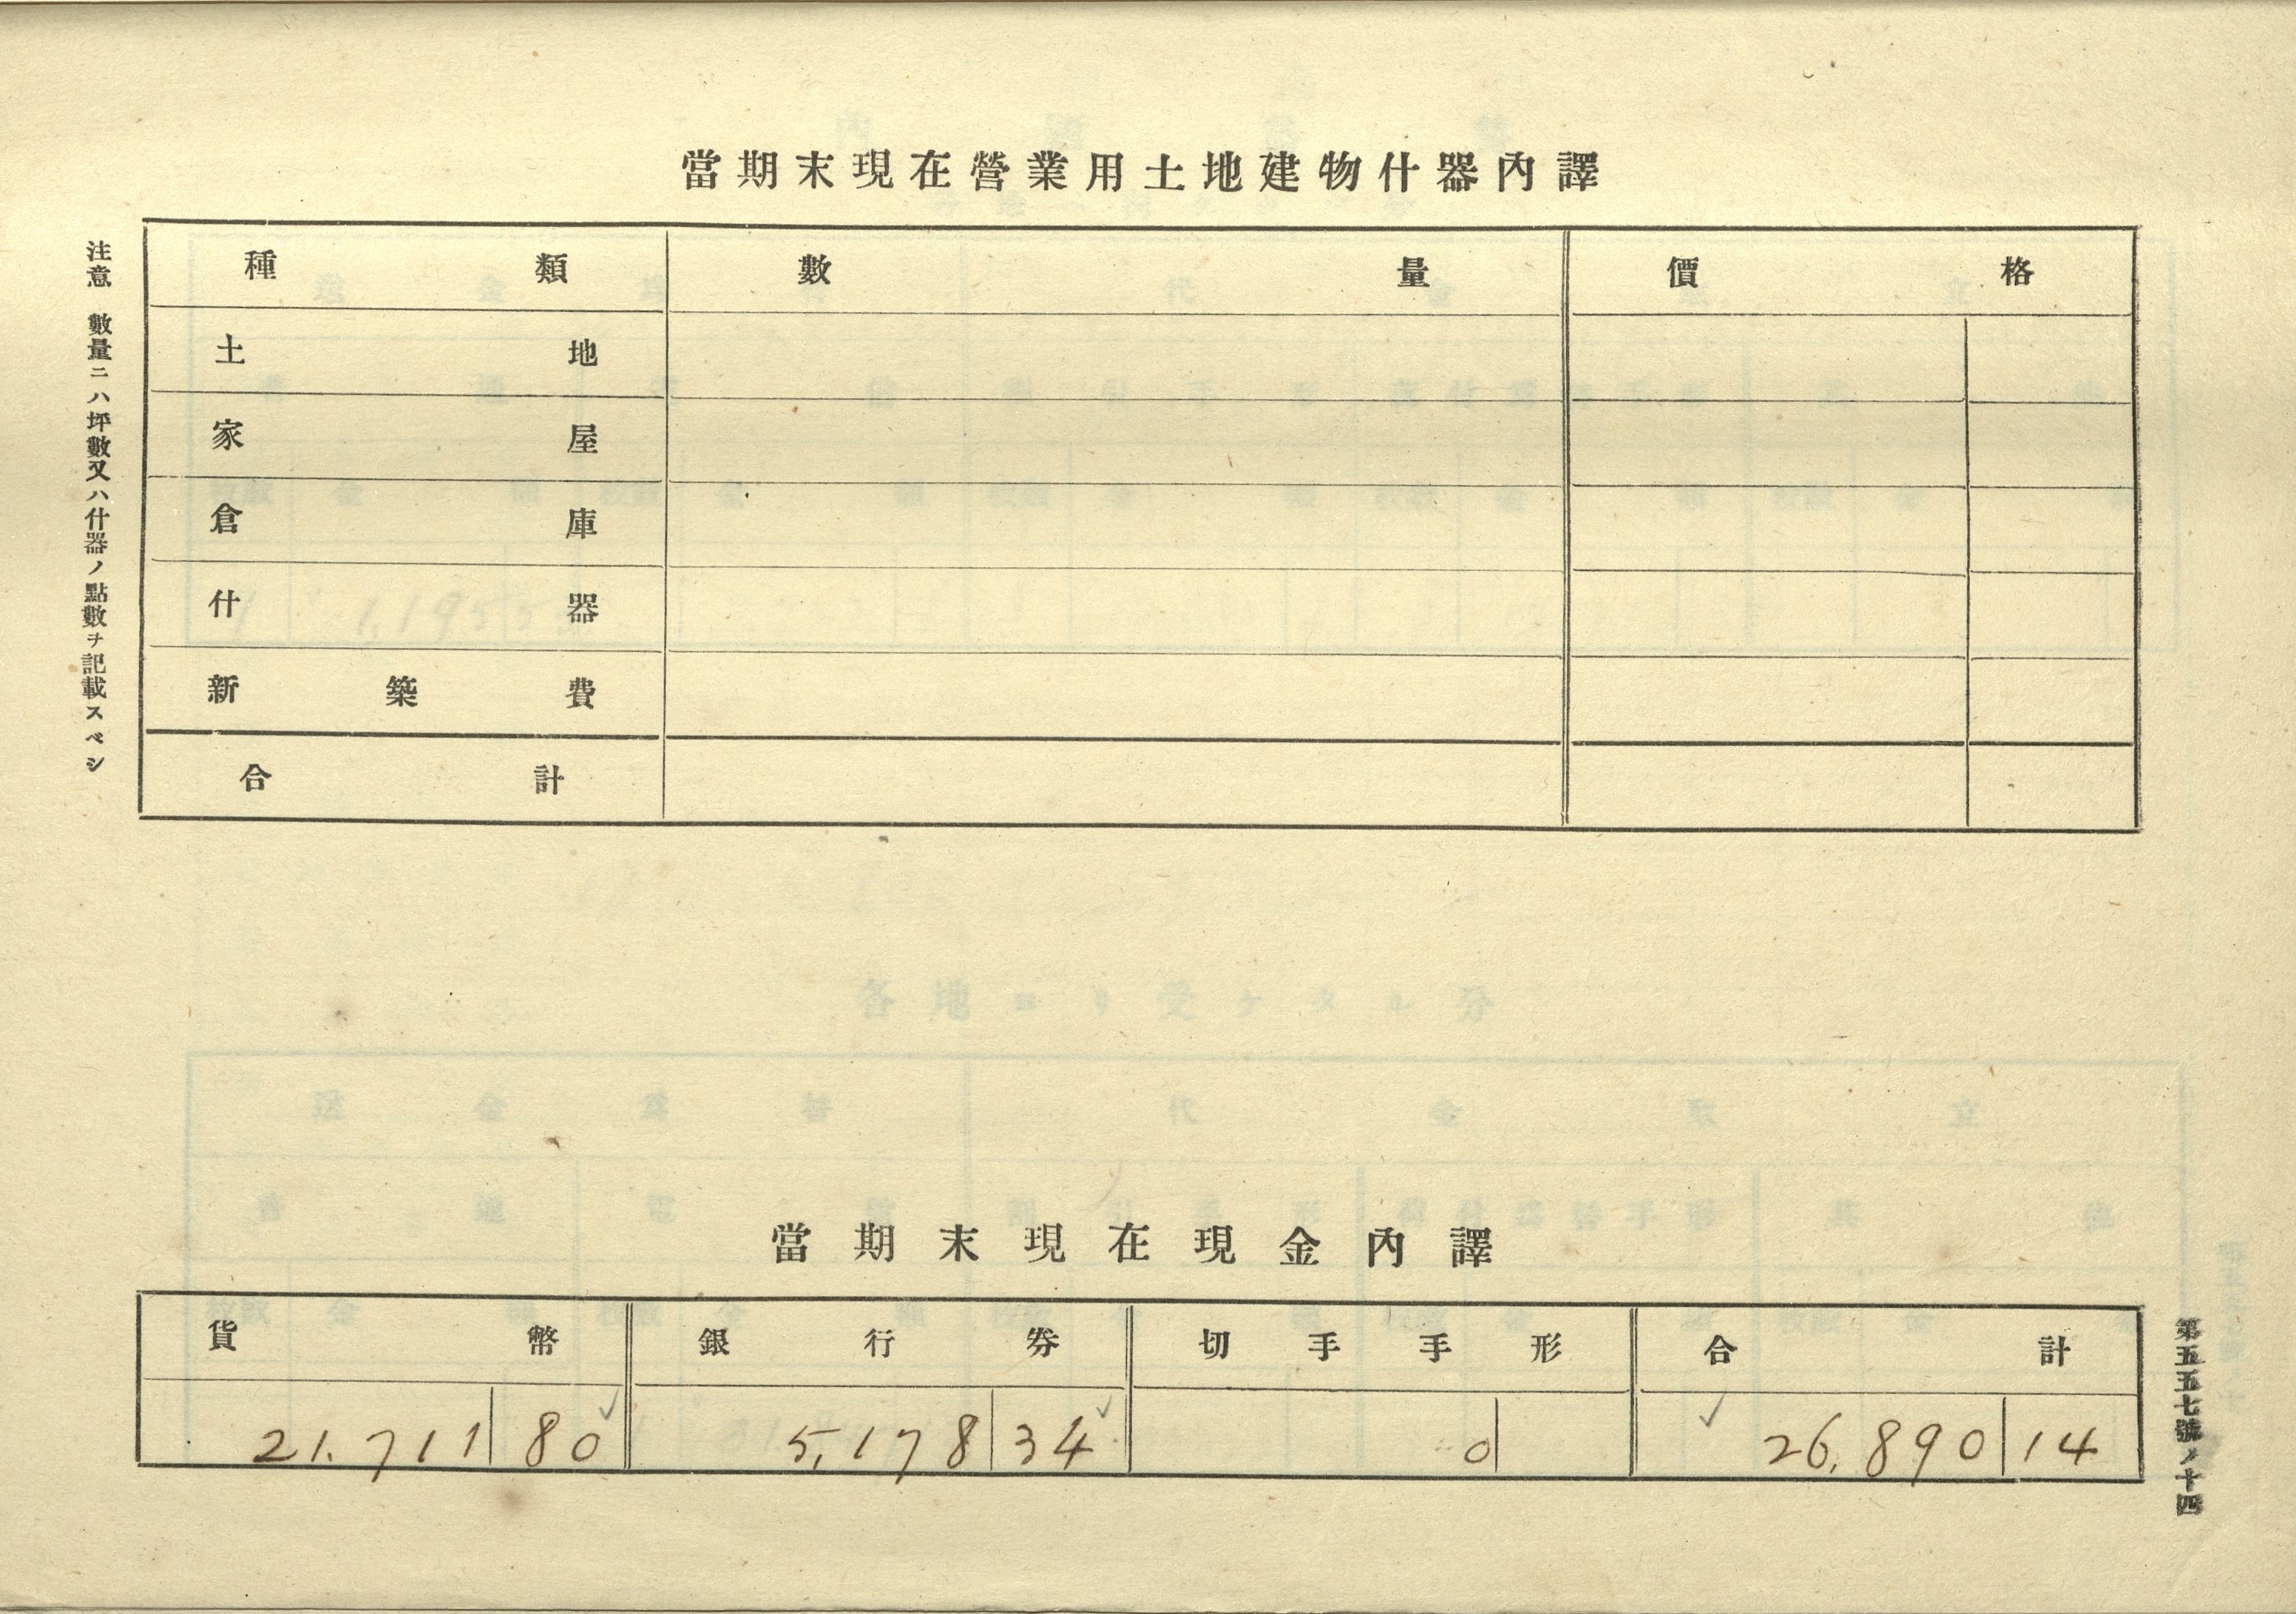 當期末現在營業用土地建物什器內譯
種類 數量 價格
土地
家屋
倉庫
什器
新築費
合計
注意 數量ニハ坪數又ハ什器ノ點數ヲ記載スベシ
當期末現在現金內譯
貨幣 銀行券 切手手形 合計
21.711 80 5,178 34 0 26,890 14
第五五七號ノ十四